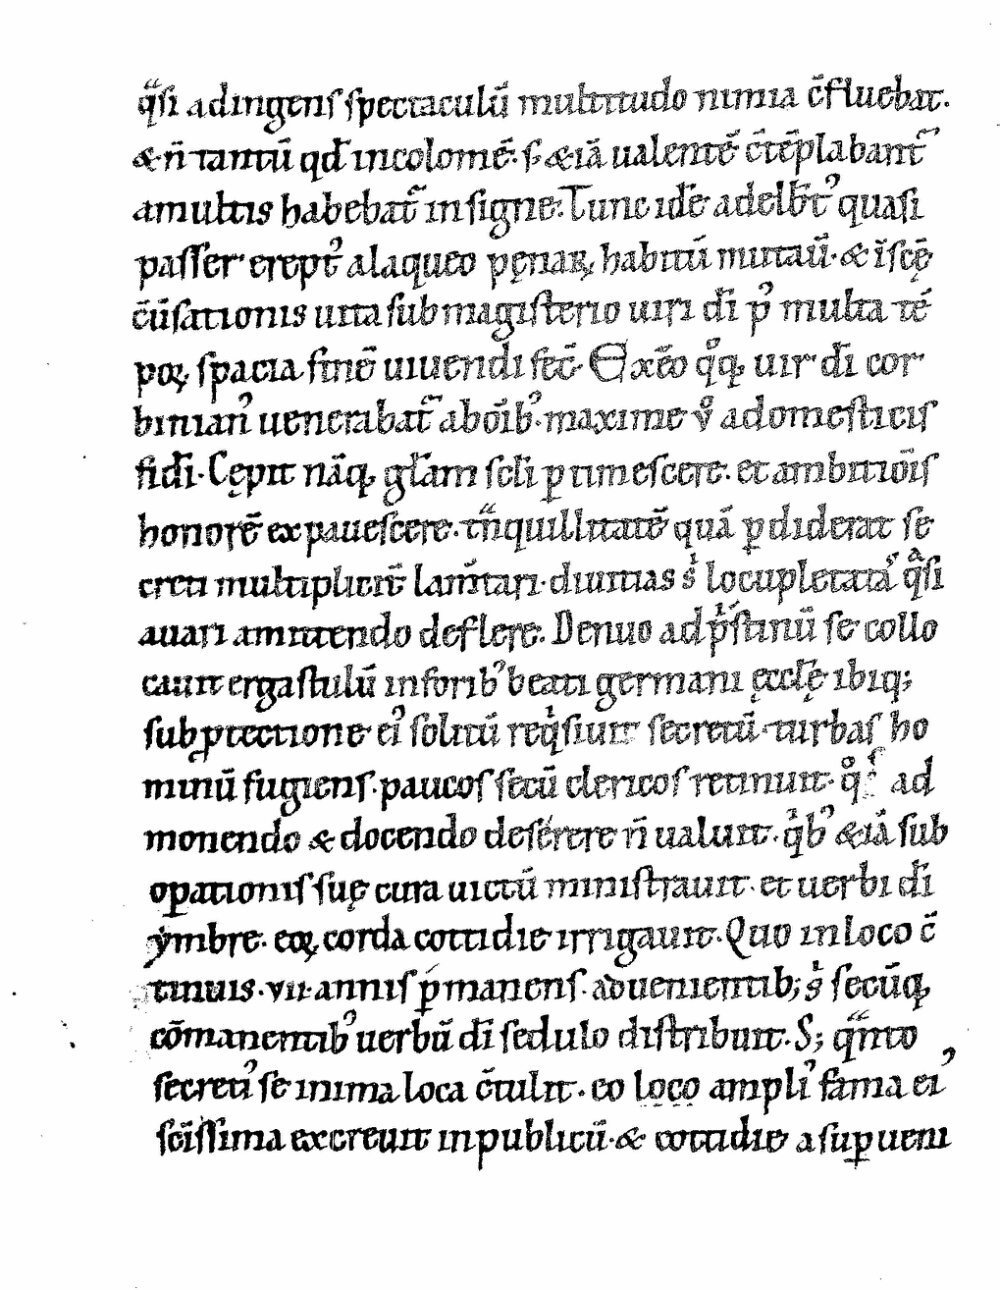 q̃si adingens spectaculũ multitudo nimia c̃fluebat.
& ñ tantũ qđ incolomẽ. s; &iã ualentẽ c̃tẽplabant᷑
amultis habebat᷑ insigne. Tunc idẽ adelbt᷒ quasi
passer erept᷒ alaqueo pęnaꝝ habitũ mutauit̃. & ĩ scẽ
c̃ũsationis uita sub magisterio uiri dĩ p᷒ multa tẽ
poꝝ spacia finẽ uiuendi fec̃. Exẽo qͦꝗ uir dĩ cor
binian᷒ uenerabat᷑ abõib᷒. maxime uͦ adomesticis
fidĩ. Cępit nãꝗ głam scłi ꝑtimescere. et ambitiõis
honorẽ expauescere. tñquillitatẽ quã ꝑdiderat se
creti multiplicit̃ lam̃tari. diuitias sⁱ locupletatas q̃si
auari amittendo deflere. Denuo adpⁱstinũ se collo
cauit ergastulũ inforib᷒ beati germani ęcclẽ ibiq;
sub ꝓtectione ei᷒ solitũ reqⁱsiuit secretũ. turbas ho
minũ fugiens. paucos secũ clericos retinuit. qͦs ad
monendo & docendo deserere ñ ualuit. qⁱb᷒ &iã sub
oꝑationis suę cura uictũ ministrauit. et uerbi dĩ
ymbre. eoꝝ corda cottidie irrigauit. Quo inloco c̃
tinuis. vii. annis ꝑmanens. aduenientib; sⁱ secũꝗ
cõmanentib᷒ uerbũ dĩ sedulo distribuit. S; q̃nto
secreti᷒ se inima loca c̃tulit. eo loco ampli᷒ fama ei᷒
scĩssima excreuit inpublicũ. & cottidie asuꝑueni